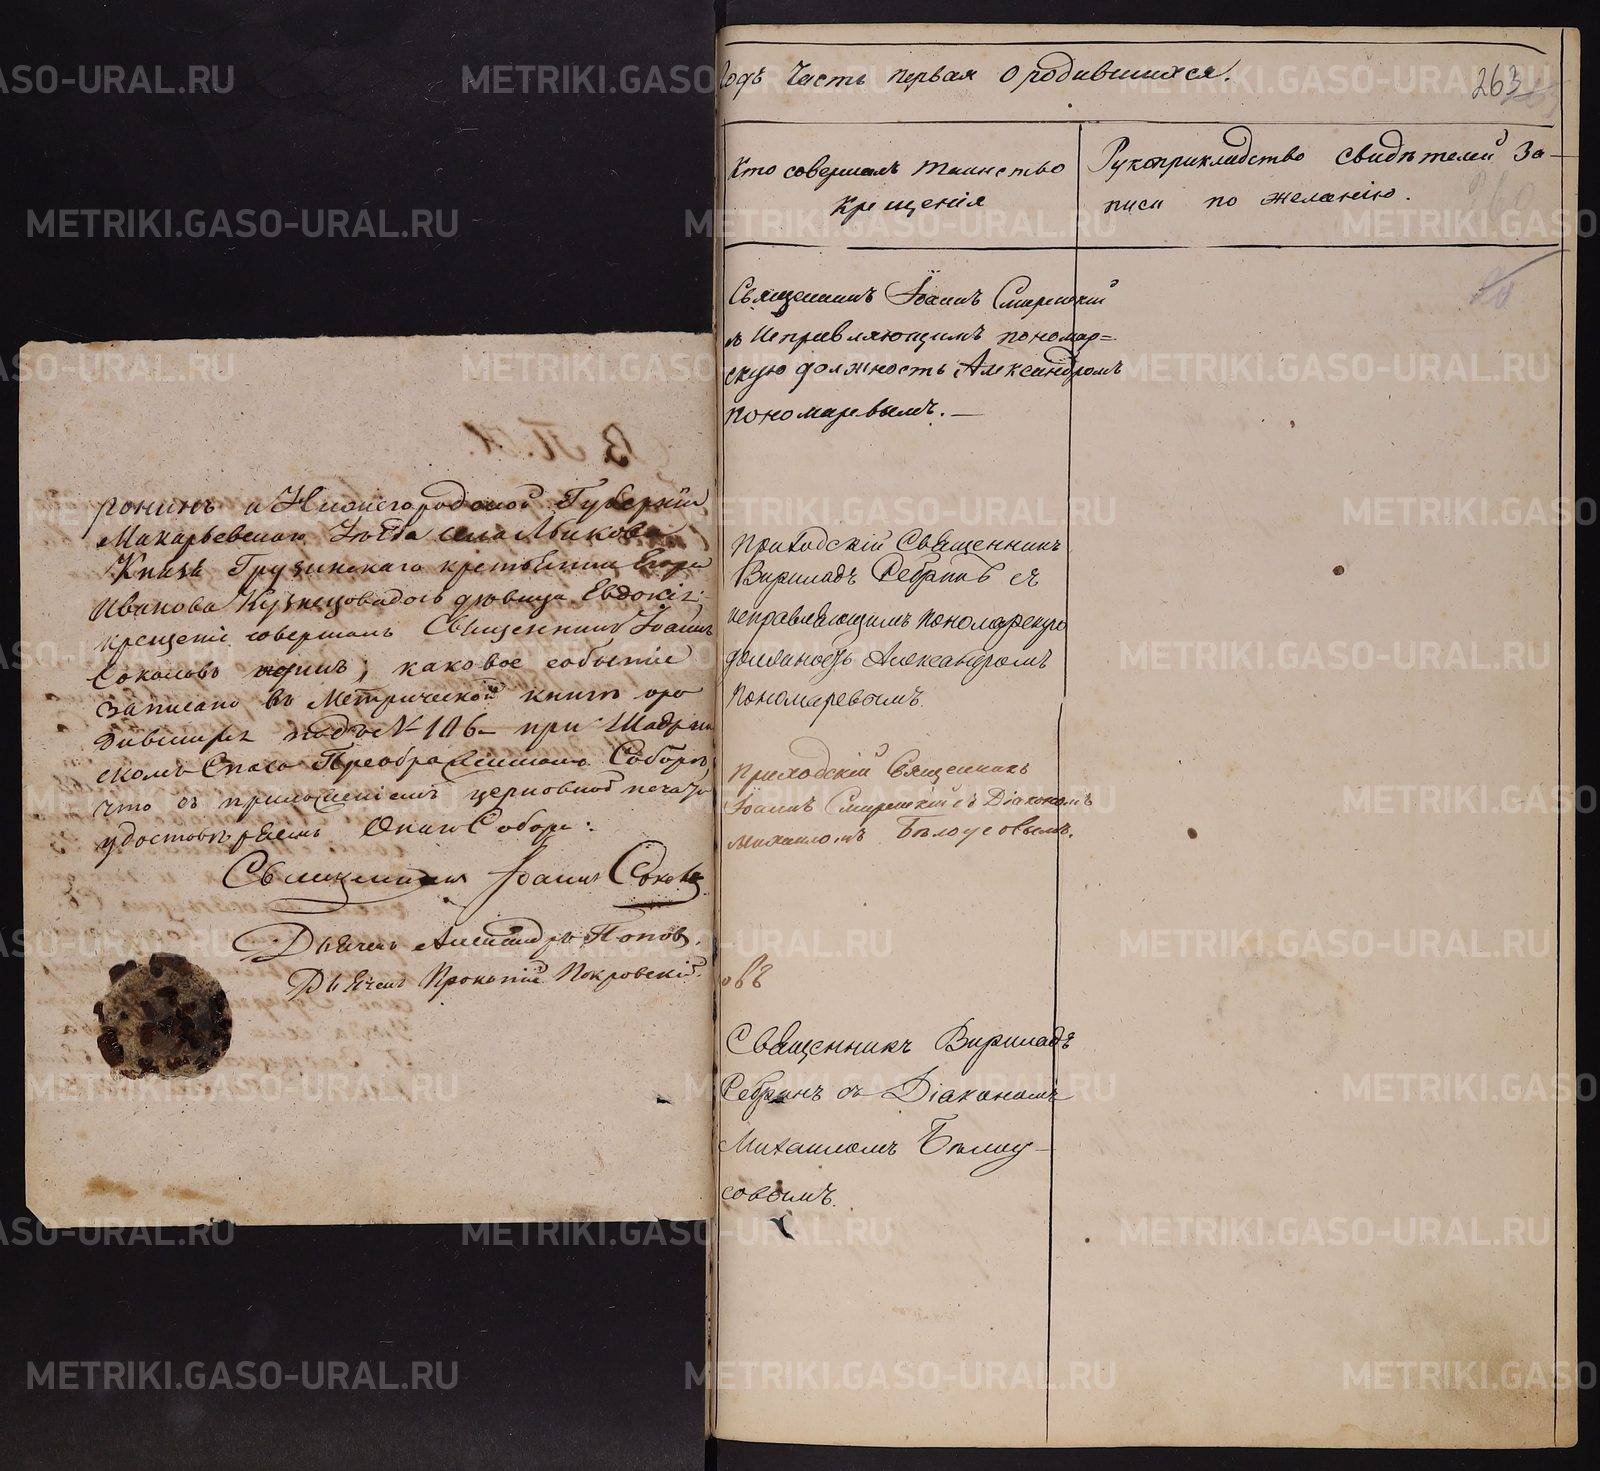 ронинъ и Нижегородской Губерніи
Макарьевскаго Уѣзда села Лыскова
Князя Грузинскаго крестьянина Егора
Иванова Кузнецова дочь дѣвица Евдокія;
крещеніе совершалъ Священникъ Іоаннъ
Соколовъ, каковое событіе
записано въ Метрической книгѣ оро
дившихся подъ № 106 при Шадрин
скомъ Спасо Преображенскомъ Соборѣ,
что съ приложеніемъ церковной печати
удостовѣряемъ Онаго Собора:
Священникъ Іоаннъ Соколовъ
Дьячекъ Александръ Поповъ.
Дьячекъ Прокопій Покровскій.
годъ Часть первая о родившихся.
263
Кто совершалъ таинство
крещенія
Рукоприкладство свидѣтелей за-
писи по желанію.
260
Священникъ Іоаннъ Смирнскій
съ Исправляющимъ пономар=
скую должность Александромъ
Пономаревымъ.—
Приходскій Священникъ
Вириладъ Ребринъ съ
исправляющимъ пономарскую
должность Александромъ
Пономаревымъ.
Приходскій Священникъ
Іоаннъ Смирнскій съ Діакономъ
Михаиломъ Бѣлоусовымъ.
овъ
Священникъ Вириладъ
Ребринъ съ Діакономъ
Михаиломъ Бѣлоу-
совымъ.
METRIKI.GASO-URAL.RU